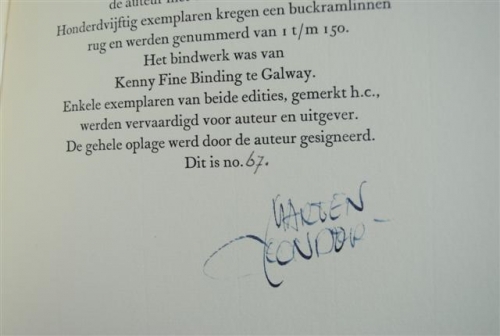 de auteur
Honderdvijftig exemplaren kregen een buckramlinnen
rug en werden genummerd van 1 t/m 150.
Het bindwerk was van
Kenny Fine Binding te Galway.
Enkele exemplaren van beide edities, gemerkt h.c.,
werden vervaardigd voor auteur en uitgever.
De gehele oplage werd door de auteur gesigneerd.
Dit is no. 67.
MARTEN